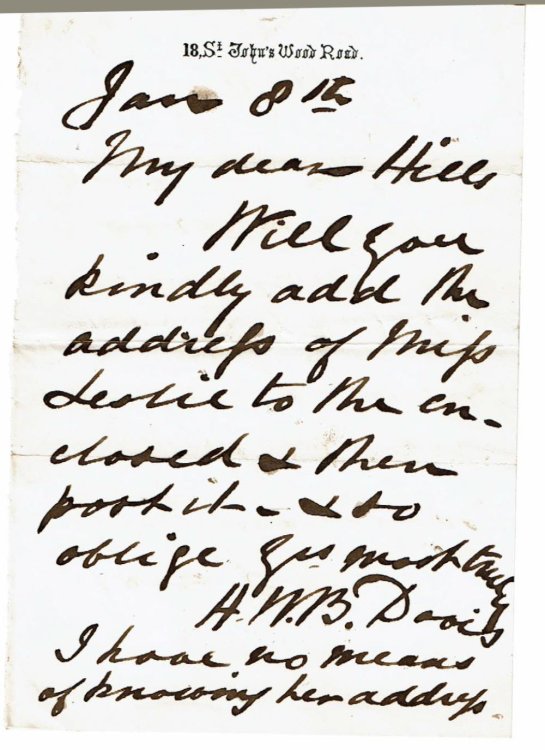 18, St. John's Wood Road.
Jan 8th
My dear Hills
Will you
kindly add the
address of Miss
Leslie to the en-
closed & then
post it - & so
oblige Yrs most truly
H.W.B. Davis
I have no means
of knowing her address.